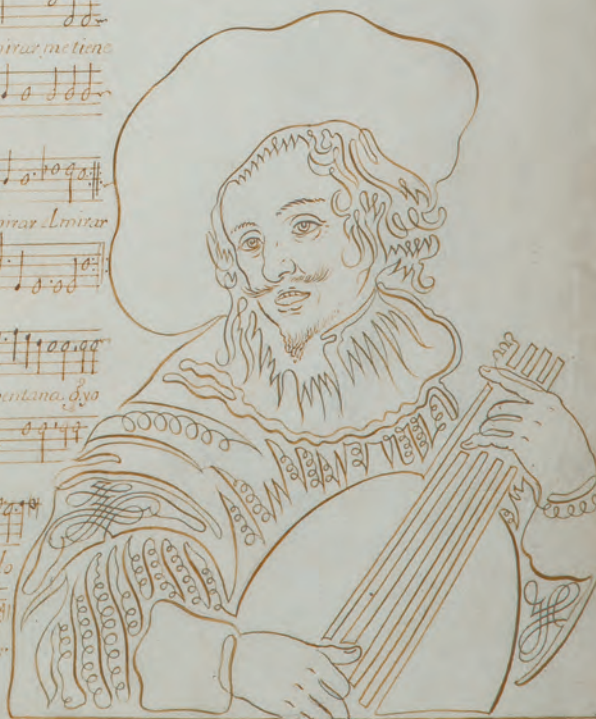 mirar me tiene
mirar Al mirar
ventana. q. yo
lo